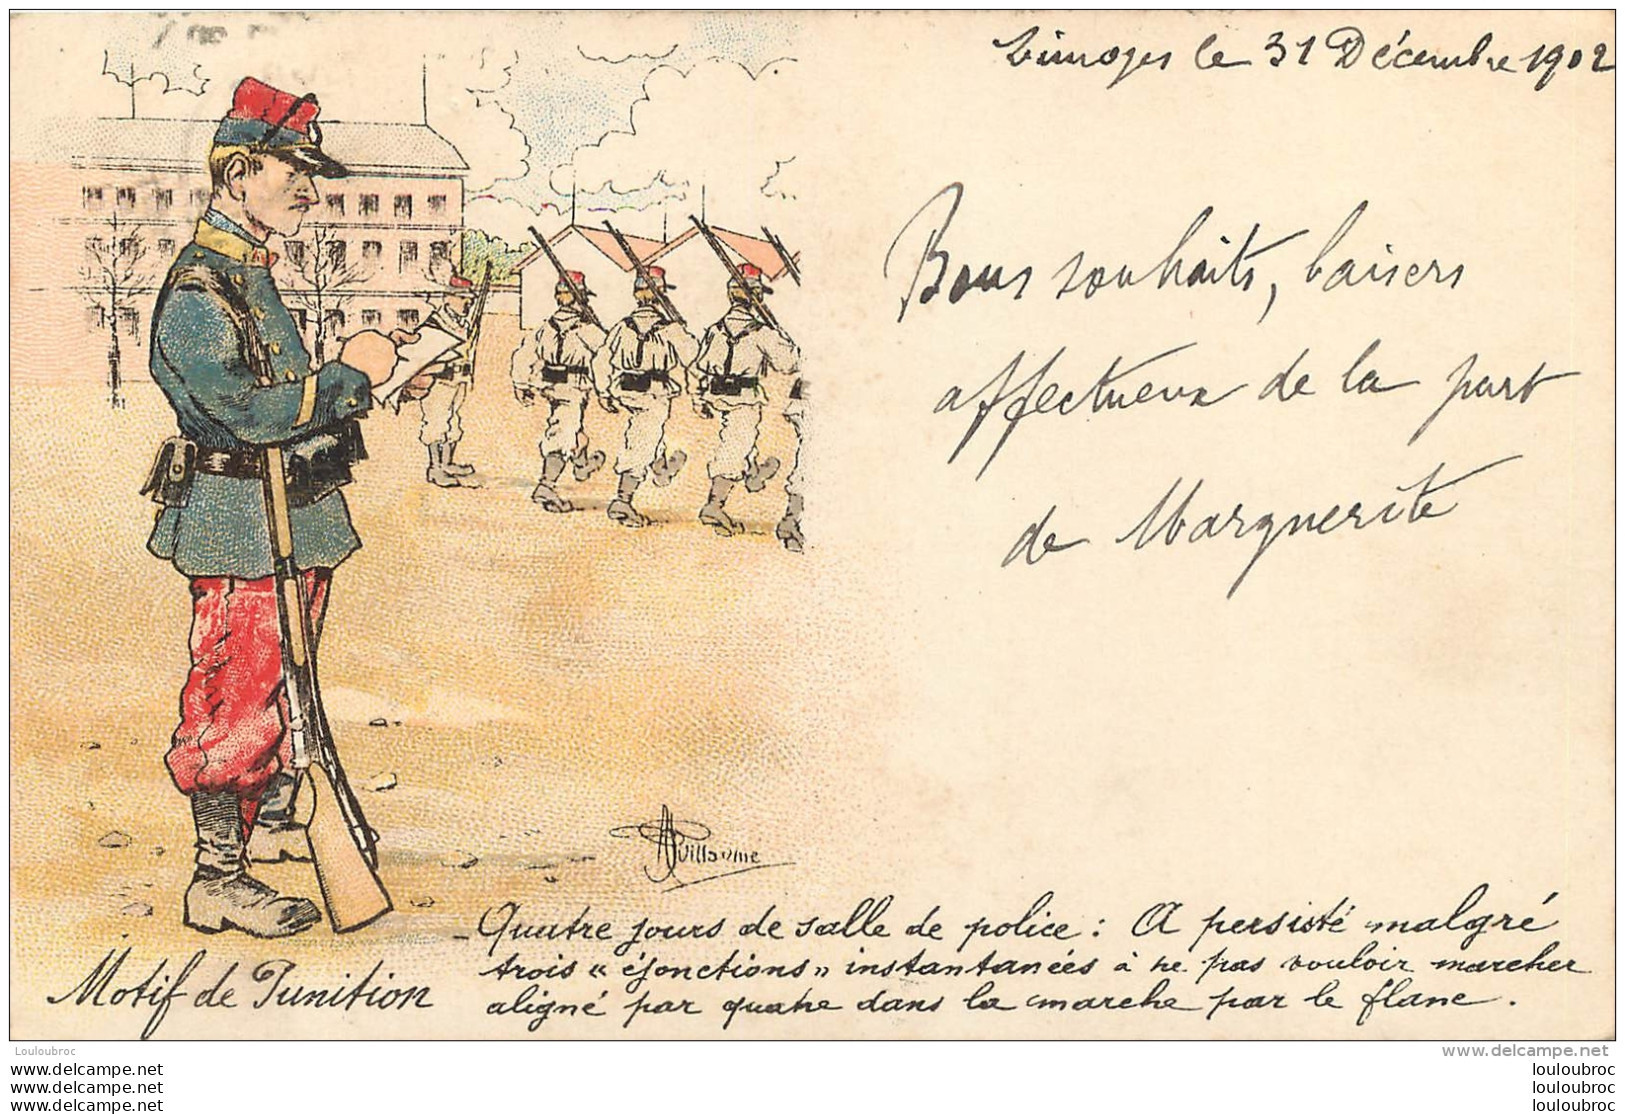 Limoges le 31 Décembre 1902
Bons souhaits, baisers
affectueux de la part
de Marguerite
AGuillaume
Motif de Punition
Quatre jours de salle de police : A persisté malgré
trois "éjonctions" instantanées à ne pas vouloir marcher
aligné par quatre dans la marche par le flanc.
Louloubroc
www.delcampe.net
louloubroc
louloubroc
louloubroc
louloubroc
louloubroc
louloubroc